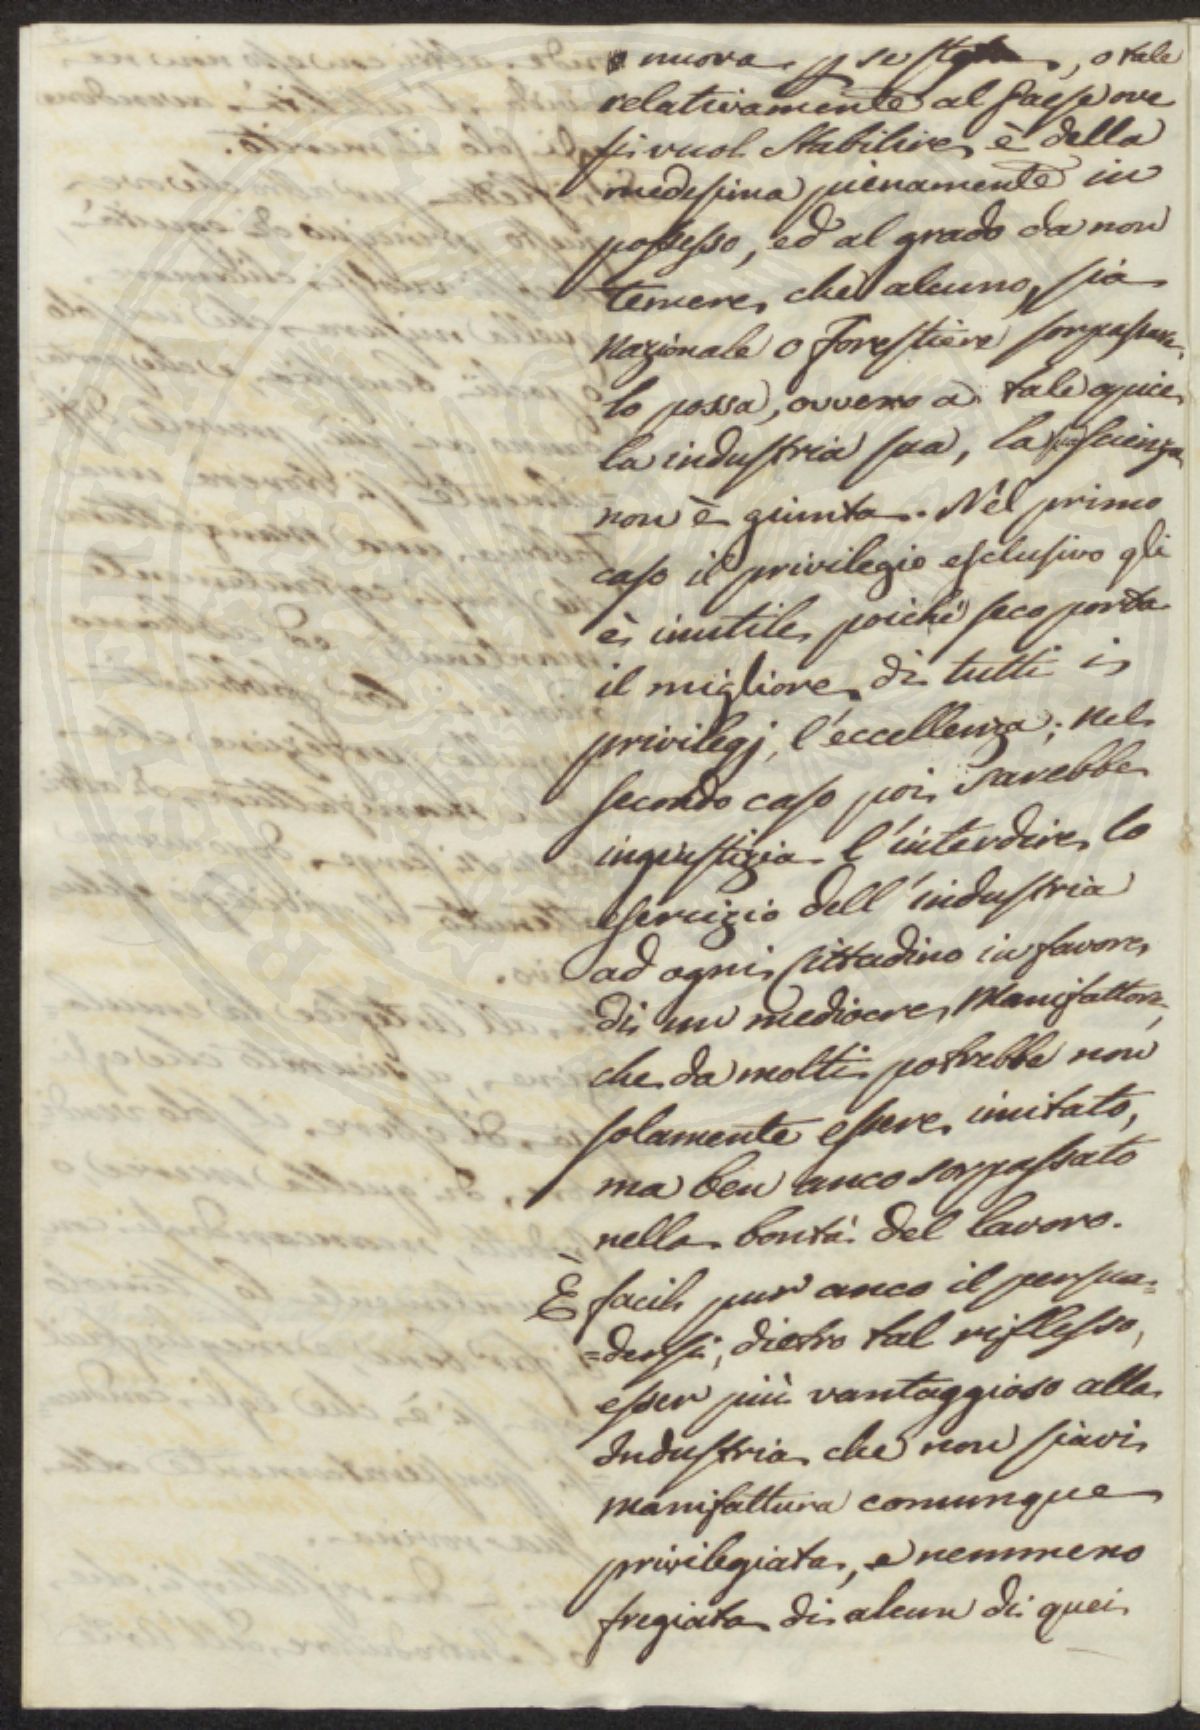 nuova p se stessa, o tale
relativamente al Paese ove
si vuol stabilire, è della
medesima pienamente in
possesso, ed al grado da non
temere, che alcuno, sia
Nazionale o Forestiere sorpassare
lo possa, ovvero a tale apice
la industria sua, la sua scienza
non è giunta. Nel primo
caso il privilegio esclusivo gli
è inutile, poiché seco porta
il migliore di tutti i
privilegj, l'eccellenza; nel
secondo caso poi sarebbe
ingiustizia l'interdire lo
esercizio dell'industria
ad ogni Cittadino in favore
di un mediocre Manifattore,
che da molti potrebbe non
solamente essere imitato,
ma ben anco sorpassato
nella bontà del lavoro.
È facil pur anco il persua=
=dersi, dietro tal riflesso,
esser più vantaggioso alla
Industria che non siavi
manifattura comunque
privilegiata, e nemmeno
fregiata di alcun di quei